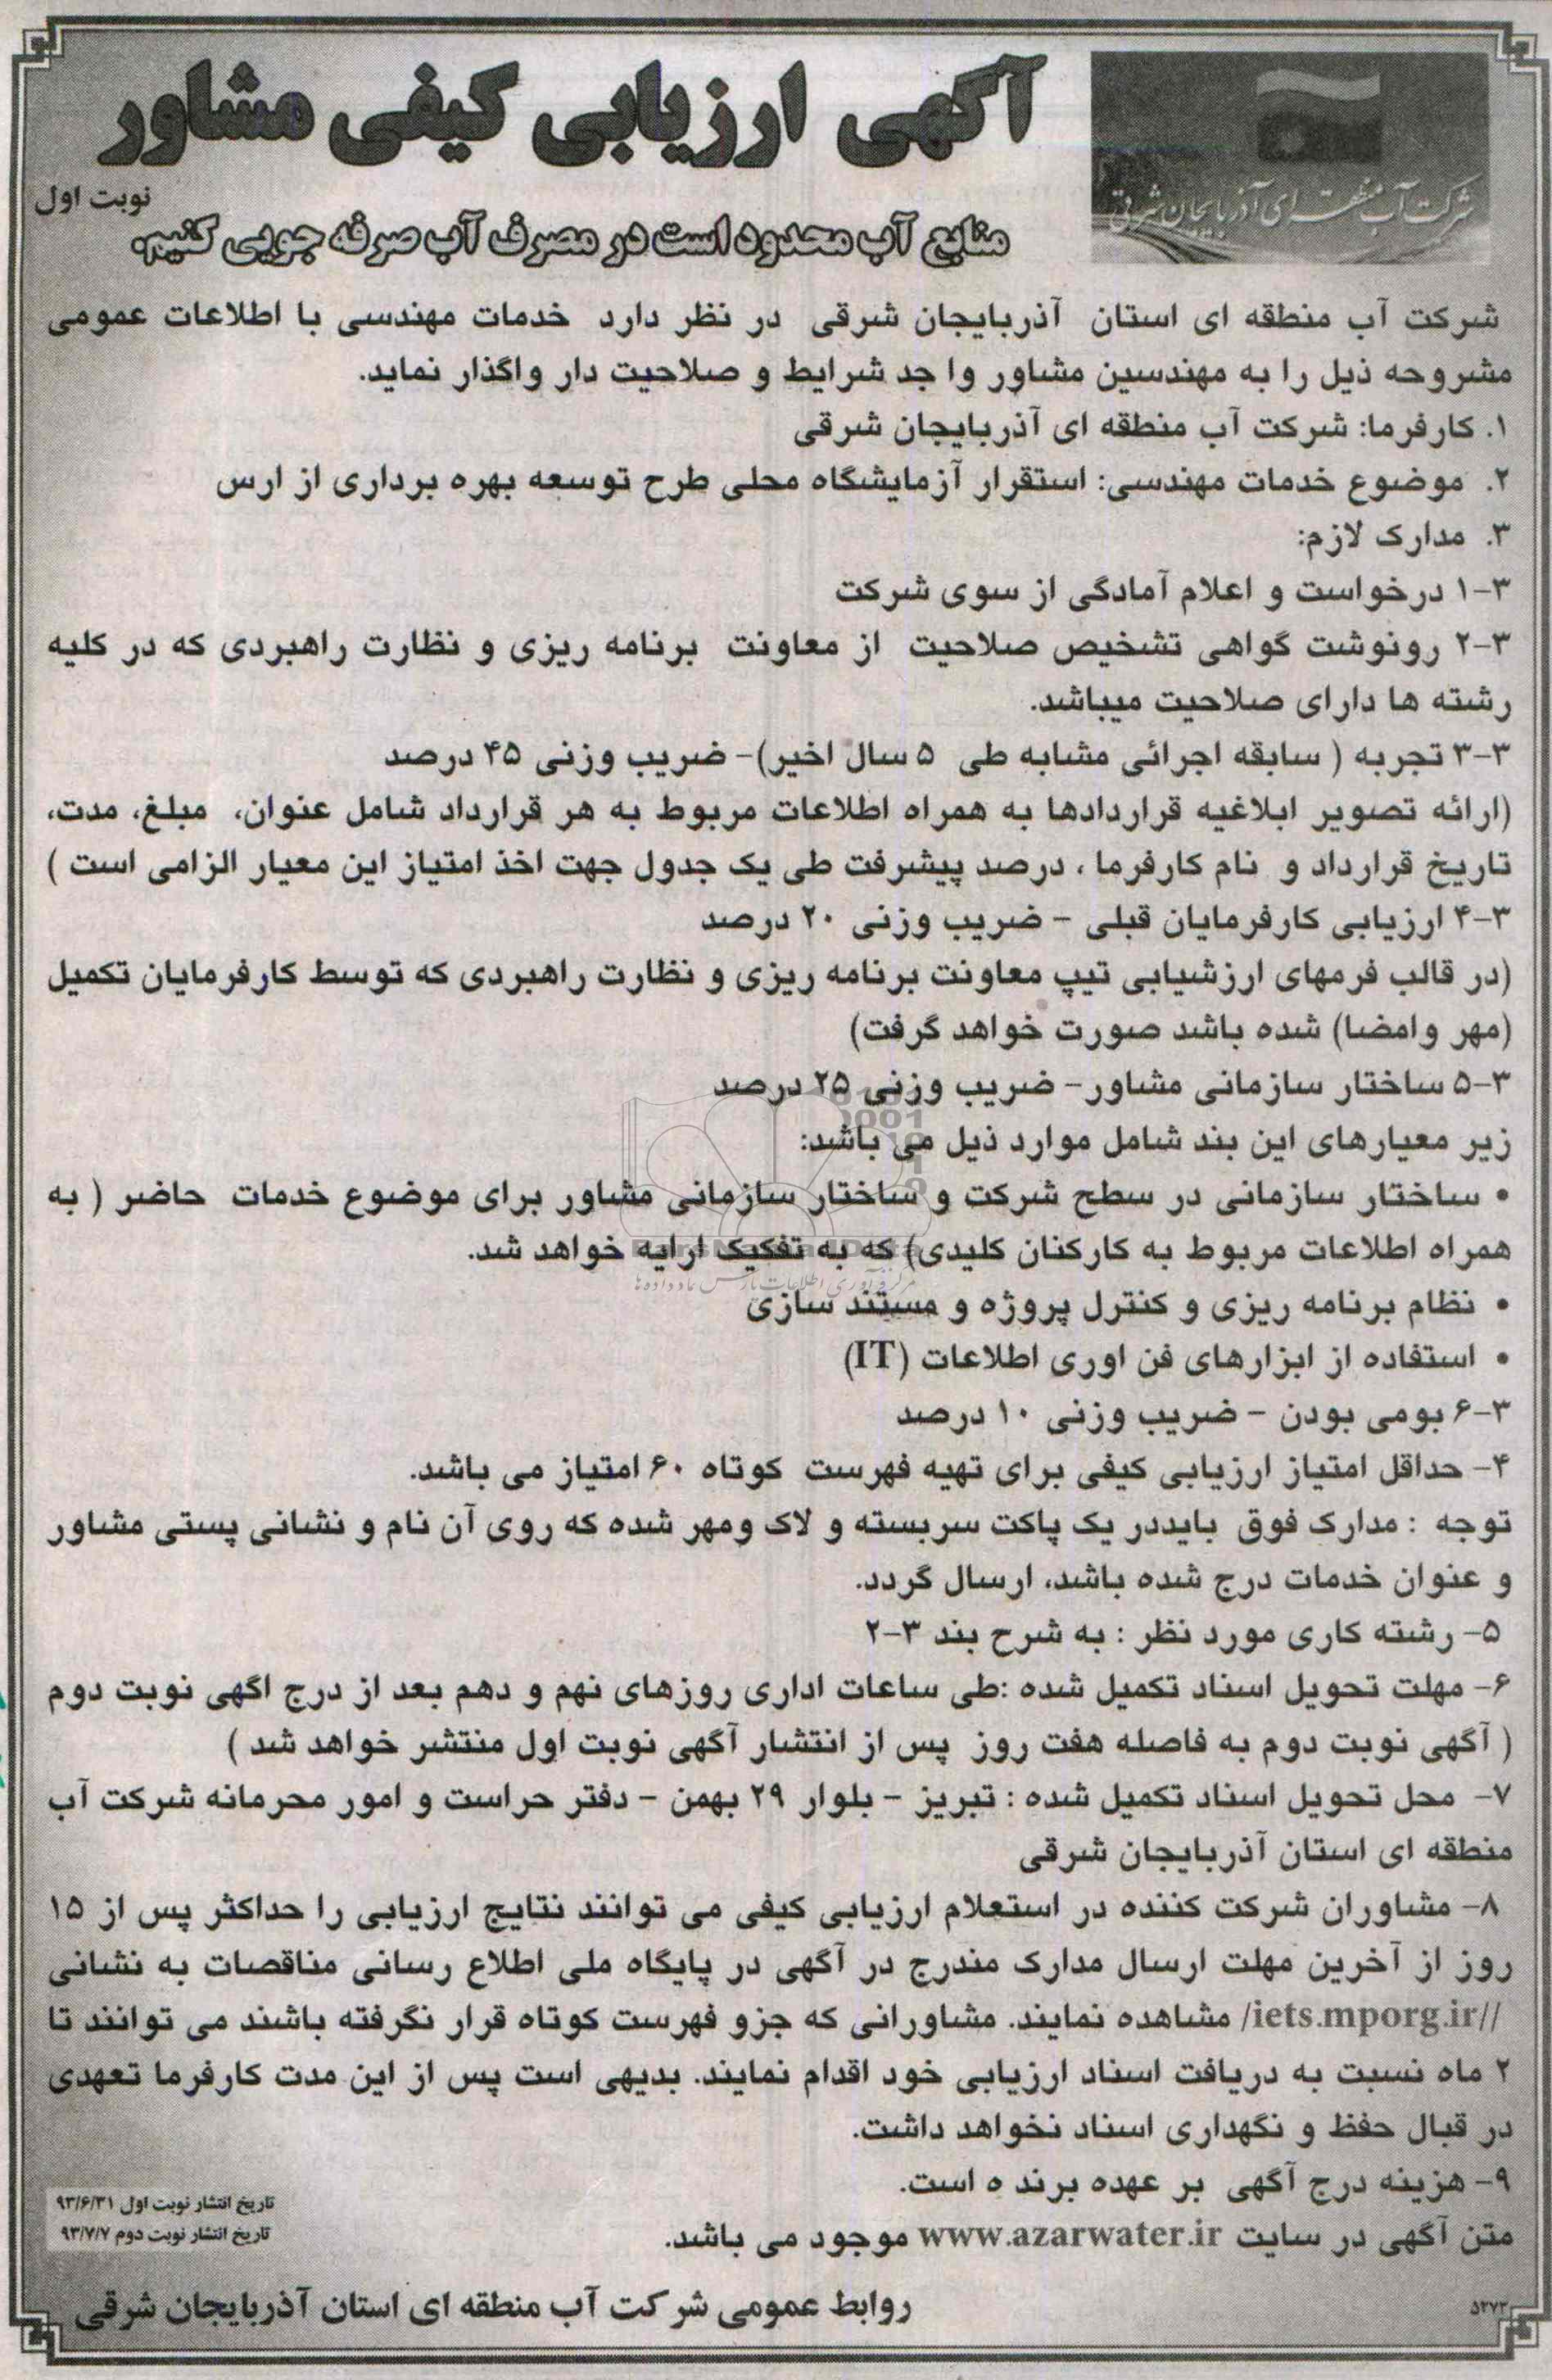 شرکت آب منطقه ای آذربایجان شرقی
آگهی ارزیابی کیفی مشاور
نوبت اول
منابع آب محدود است در مصرف آب صرفه جویی کنیم.
شرکت آب منطقه ای استان آذربایجان شرقی در نظر دارد خدمات مهندسی با اطلاعات عمومی
مشروحه ذیل را به مهندسین مشاور وا جد شرایط و صلاحیت دار واگذار نماید.
۱. کارفرما: شرکت آب منطقه ای آذربایجان شرقی
۲. موضوع خدمات مهندسی: استقرار آزمایشگاه محلی طرح توسعه بهره برداری از ارس
۳. مدارک لازم:
۳-۱ درخواست و اعلام آمادگی از سوی شرکت
۳-۲ رونوشت گواهی تشخیص صلاحیت از معاونت برنامه ریزی و نظارت راهبردی که در کلیه
رشته ها دارای صلاحیت میباشد.
۳-۳ تجربه ( سابقه اجرائی مشابه طی ۵ سال اخیر)- ضریب وزنی ۴۵ درصد
(ارائه تصویر ابلاغیه قراردادها به همراه اطلاعات مربوط به هر قرارداد شامل عنوان، مبلغ، مدت،
تاریخ قرارداد و نام کارفرما ، درصد پیشرفت طی یک جدول جهت اخذ امتیاز این معیار الزامی است )
۳-۴ ارزیابی کارفرمایان قبلی - ضریب وزنی ۲۰ درصد
(در قالب فرمهای ارزشیابی تیپ معاونت برنامه ریزی و نظارت راهبردی که توسط کارفرمایان تکمیل
(مهر وامضا) شده باشد صورت خواهد گرفت)
۳-۵ ساختار سازمانی مشاور- ضریب وزنی ۲۵ درصد
زیر معیارهای این بند شامل موارد ذیل می باشد:
• ساختار سازمانی در سطح شرکت و ساختار سازمانی مشاور برای موضوع خدمات حاضر ( به
همراه اطلاعات مربوط به کارکنان کلیدی) که به تفکیک ارایه خواهد شد.
• نظام برنامه ریزی و کنترل پروژه و مستند سازی
• استفاده از ابزارهای فن اوری اطلاعات (IT)
۳-۶ بومی بودن - ضریب وزنی ۱۰ درصد
۴- حداقل امتیاز ارزیابی کیفی برای تهیه فهرست کوتاه ۶۰ امتیاز می باشد.
توجه : مدارک فوق بایددر یک پاکت سربسته و لاک ومهر شده که روی آن نام و نشانی پستی مشاور
و عنوان خدمات درج شده باشد، ارسال گردد.
۵- رشته کاری مورد نظر : به شرح بند ۳-۲
۶- مهلت تحویل اسناد تکمیل شده :طی ساعات اداری روزهای نهم و دهم بعد از درج اگهی نوبت دوم
( آگهی نوبت دوم به فاصله هفت روز پس از انتشار آگهی نوبت اول منتشر خواهد شد )
۷- محل تحویل اسناد تکمیل شده : تبریز - بلوار ۲۹ بهمن - دفتر حراست و امور محرمانه شرکت آب
منطقه ای استان آذربایجان شرقی
۸- مشاوران شرکت کننده در استعلام ارزیابی کیفی می توانند نتایج ارزیابی را حداکثر پس از ۱۵
روز از آخرین مهلت ارسال مدارک مندرج در آگهی در پایگاه ملی اطلاع رسانی مناقصات به نشانی
//iets.mporg.ir/ مشاهده نمایند. مشاورانی که جزو فهرست کوتاه قرار نگرفته باشند می توانند تا
۲ ماه نسبت به دریافت اسناد ارزیابی خود اقدام نمایند. بدیهی است پس از این مدت کارفرما تعهدی
در قبال حفظ و نگهداری اسناد نخواهد داشت.
۹- هزینه درج آگهی بر عهده برند ه است.
متن آگهی در سایت www.azarwater.ir موجود می باشد.
تاریخ انتشار نوبت اول ۹۳/۶/۳۱
تاریخ انتشار نوبت دوم ۹۳/۷/۷
روابط عمومی شرکت آب منطقه ای استان آذربایجان شرقی
۵۲۷۳